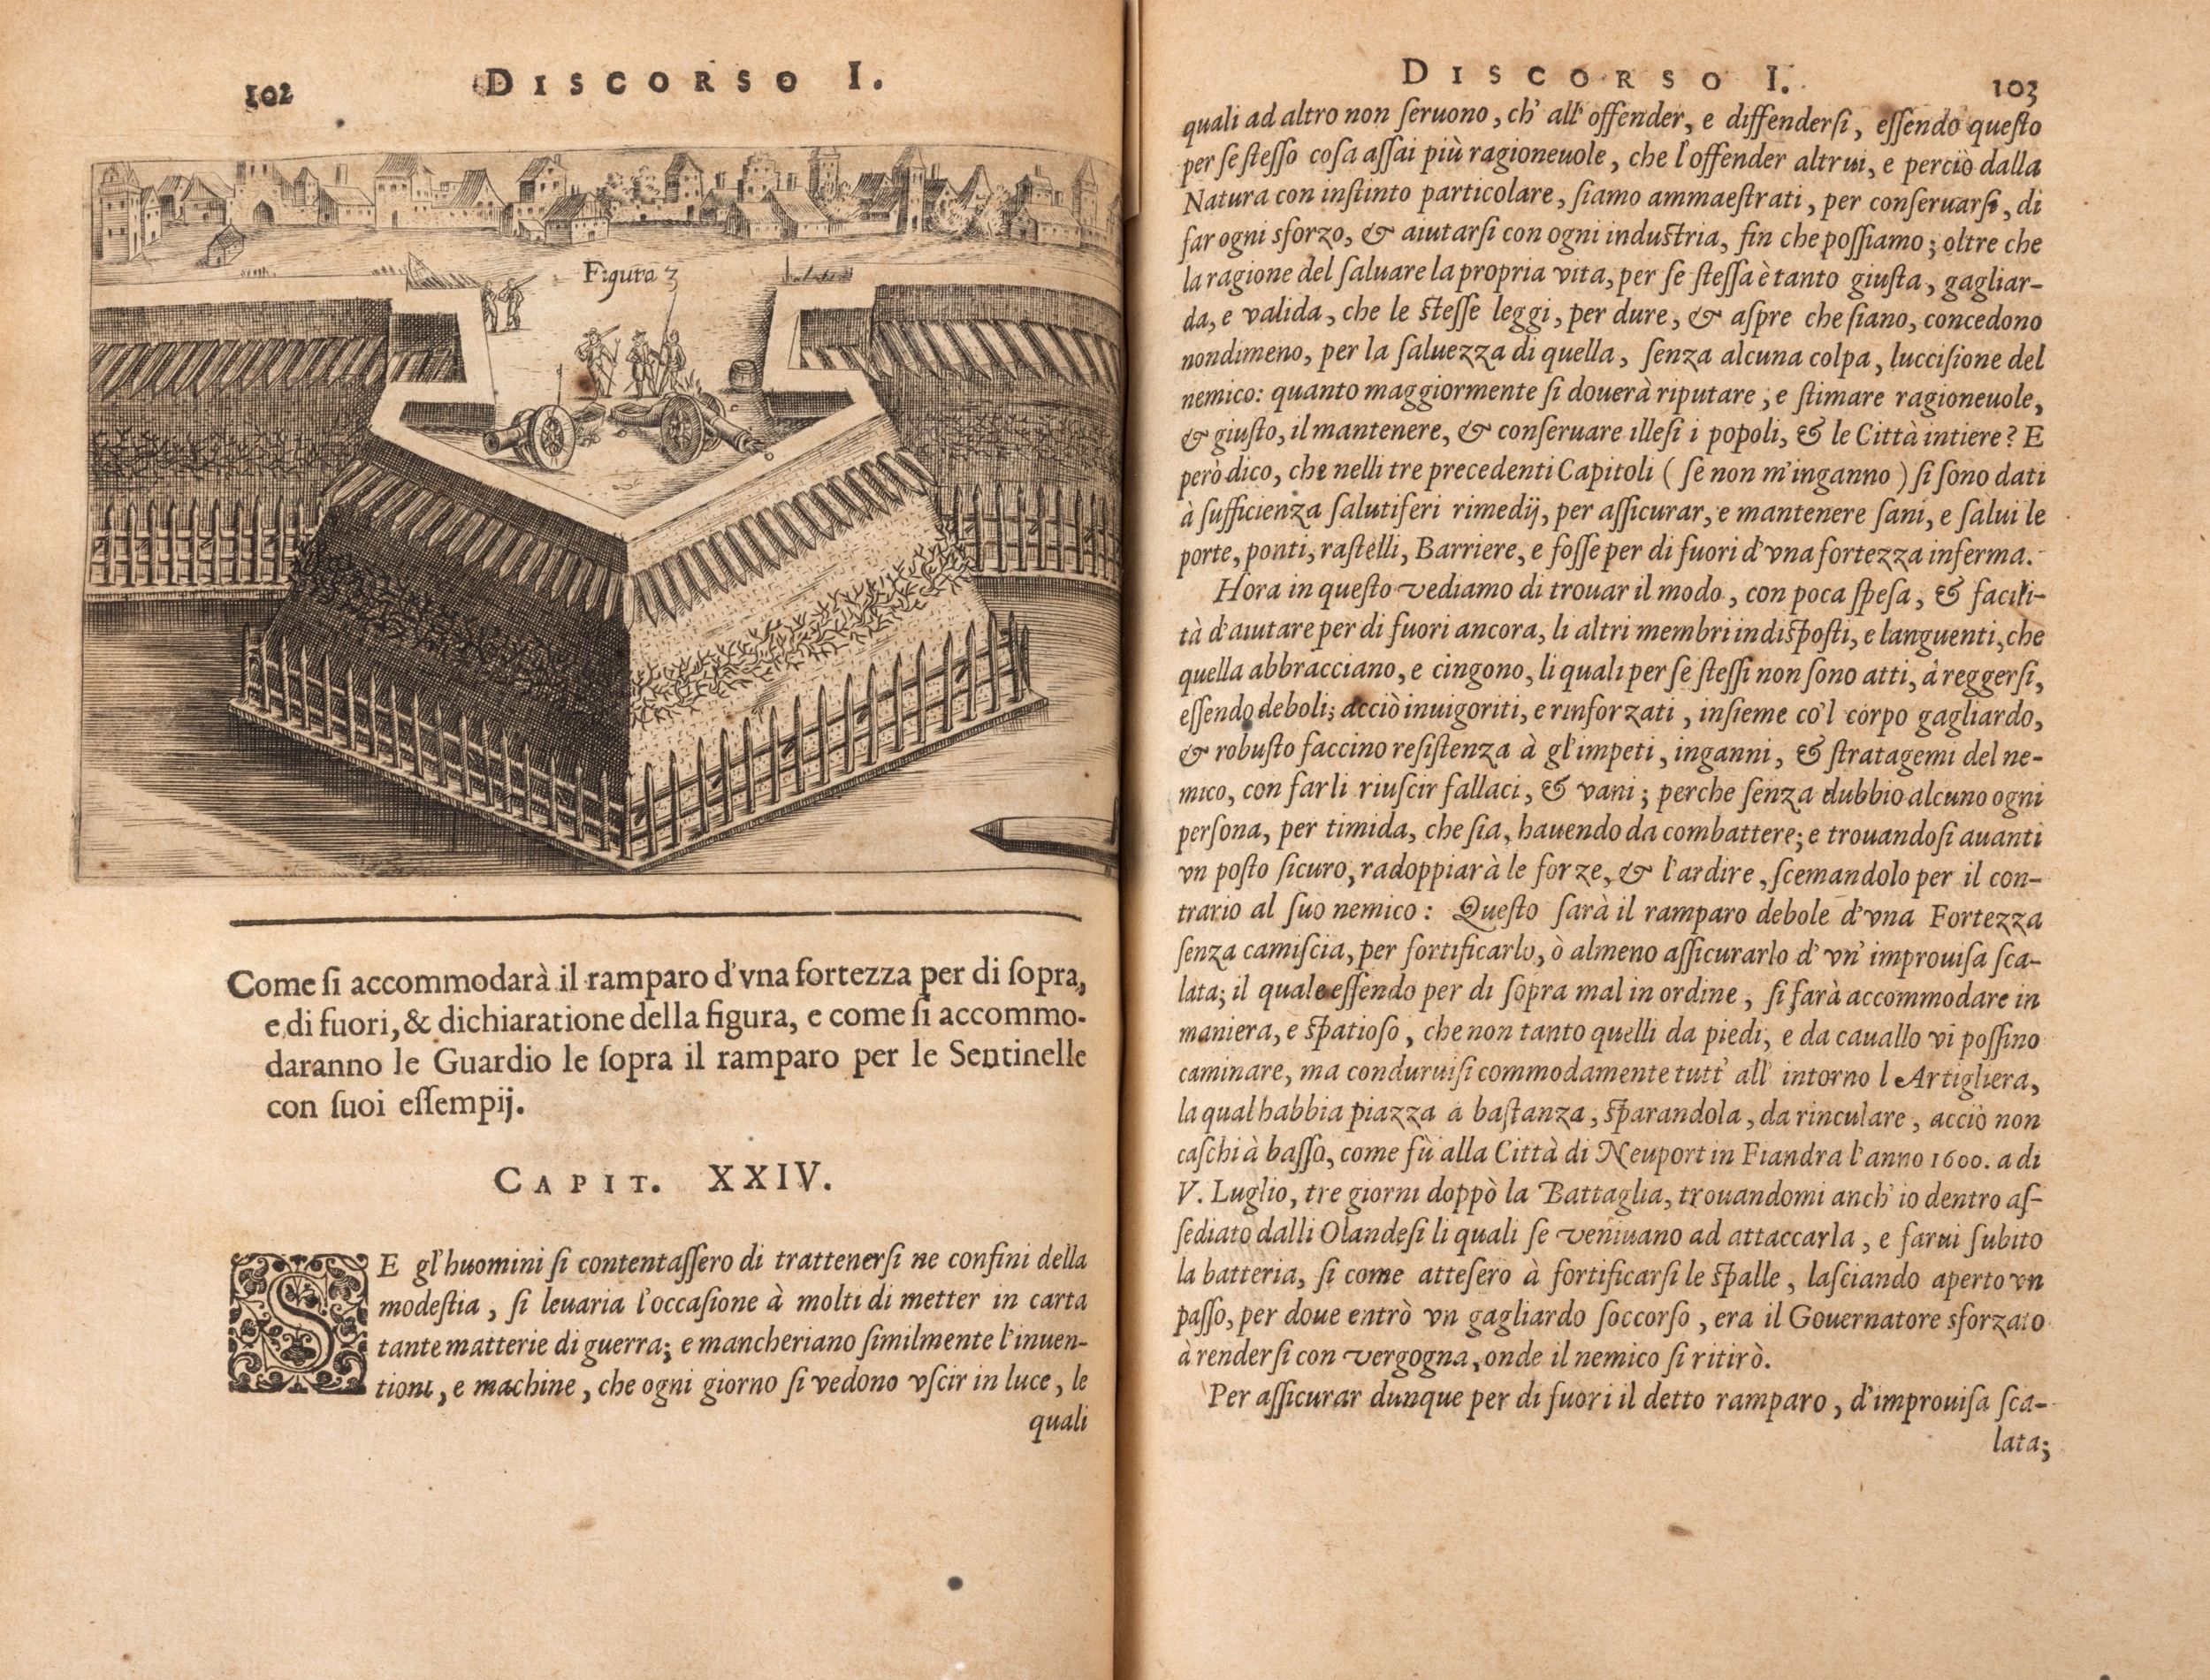 102 DISCORSO I.
Figura 3
Come ſi accommodarà il ramparo d'vna fortezza per di ſopra,
e di fuori, & dichiaratione della figura, e come ſi accommo-
daranno le Guardio le ſopra il ramparo per le Sentinelle
con ſuoi eſſempij.
CAPIT. XXIV.
SE gl'huomini ſi contentaſſero di trattenerſi ne confini della
modeſtia, ſi leuaria l'occaſione à molti di metter in carta
tante matterie di guerra; e mancheriano ſimilmente l'inuen-
tioni, e machine, che ogni giorno ſi vedono vſcir in luce, le
quali
DISCORSO I. 103
quali ad altro non ſeruono, ch' all' offender, e diffenderſi, eſſendo queſto
per ſe ſteſſo coſa aſſai più ragioneuole, che l'offender altrui, e perciò dalla
Natura con inſtinto particolare, ſiamo ammaeſtrati, per conſeruarſi, di
far ogni sforzo, & aiutarſi con ogni induſtria, fin che poſſiamo; oltre che
la ragione del ſaluare la propria vita, per ſe ſteſſa è tanto giuſta, gagliar-
da, e valida, che le ſteſſe leggi, per dure, & aſpre che ſiano, concedono
nondimeno, per la ſaluezza di quella, ſenza alcuna colpa, lucciſione del
nemico: quanto maggiormente ſi douerà riputare, e ſtimare ragioneuole,
& giuſto, il mantenere, & conſeruare illeſi i popoli, & le Città intiere? E
però dico, che nelli tre precedenti Capitoli ( ſe non m'inganno ) ſi ſono dati
à ſufficienza ſalutiferi rimedij, per aſſicurar, e mantenere ſani, e ſalui le
porte, ponti, raſtelli, Barriere, e foſſe per di fuori d'vna fortezza inferma.
Hora in queſto vediamo di trouar il modo, con poca ſpeſa, & facili-
tà d'aiutare per di fuori ancora, li altri membri indiſpoſti, e languenti, che
quella abbracciano, e cingono, li quali per ſe ſteſſi non ſono atti, à reggerſi,
eſſendo deboli; acciò inuigoriti, e rinforzati, inſieme co'l corpo gagliardo,
& robuſto faccino reſiſtenza à gl'impeti, inganni, & ſtratagemi del ne-
mico, con farli riuſcir fallaci, & vani; perche ſenza dubbio alcuno ogni
perſona, per timida, che ſia, hauendo da combattere; e trouandoſi auanti
vn poſto ſicuro, radoppiarà le forze, & l'ardire, ſcemandolo per il con-
trario al ſuo nemico: Queſto ſarà il ramparo debole d'vna Fortezza
ſenza camiſcia, per fortificarlo, ò almeno aſſicurarlo d' vn' improuiſa ſca-
lata; il quale eſſendo per di ſopra mal in ordine, ſi farà accommodare in
maniera, e ſpatioſo, che non tanto quelli da piedi, e da cauallo vi poſſino
caminare, ma conduruiſi commodamente tutt' all' intorno l Artigliera,
la qual habbia piazza à baſtanza, ſparandola, da rinculare, acciò non
caſchi à baſſo, come fù alla Città di Neuport in Fiandra l'anno 1600. a di
V. Luglio, tre giorni doppò la Battaglia, trouandomi anch' io dentro aſ-
ſediato dalli Olandeſi li quali ſe veniuano ad attaccarla, e farui ſubito
la batteria, ſi come atteſero à fortificarſi le ſpalle, laſciando aperto vn
paſſo, per doue entrò vn gagliardo ſoccorſo, era il Gouernatore sforzato
à renderſi con vergogna, onde il nemico ſi ritirò.
Per aſſicurar dunque per di fuori il detto ramparo, d'improuiſa ſca-
lata;